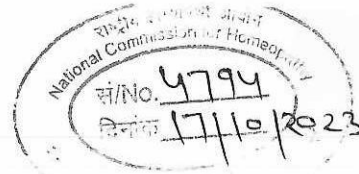 राष्ट्रीय आयोग
National Commission for Homeopathy
सं/No. 4794
दिनांक 17/10/2023